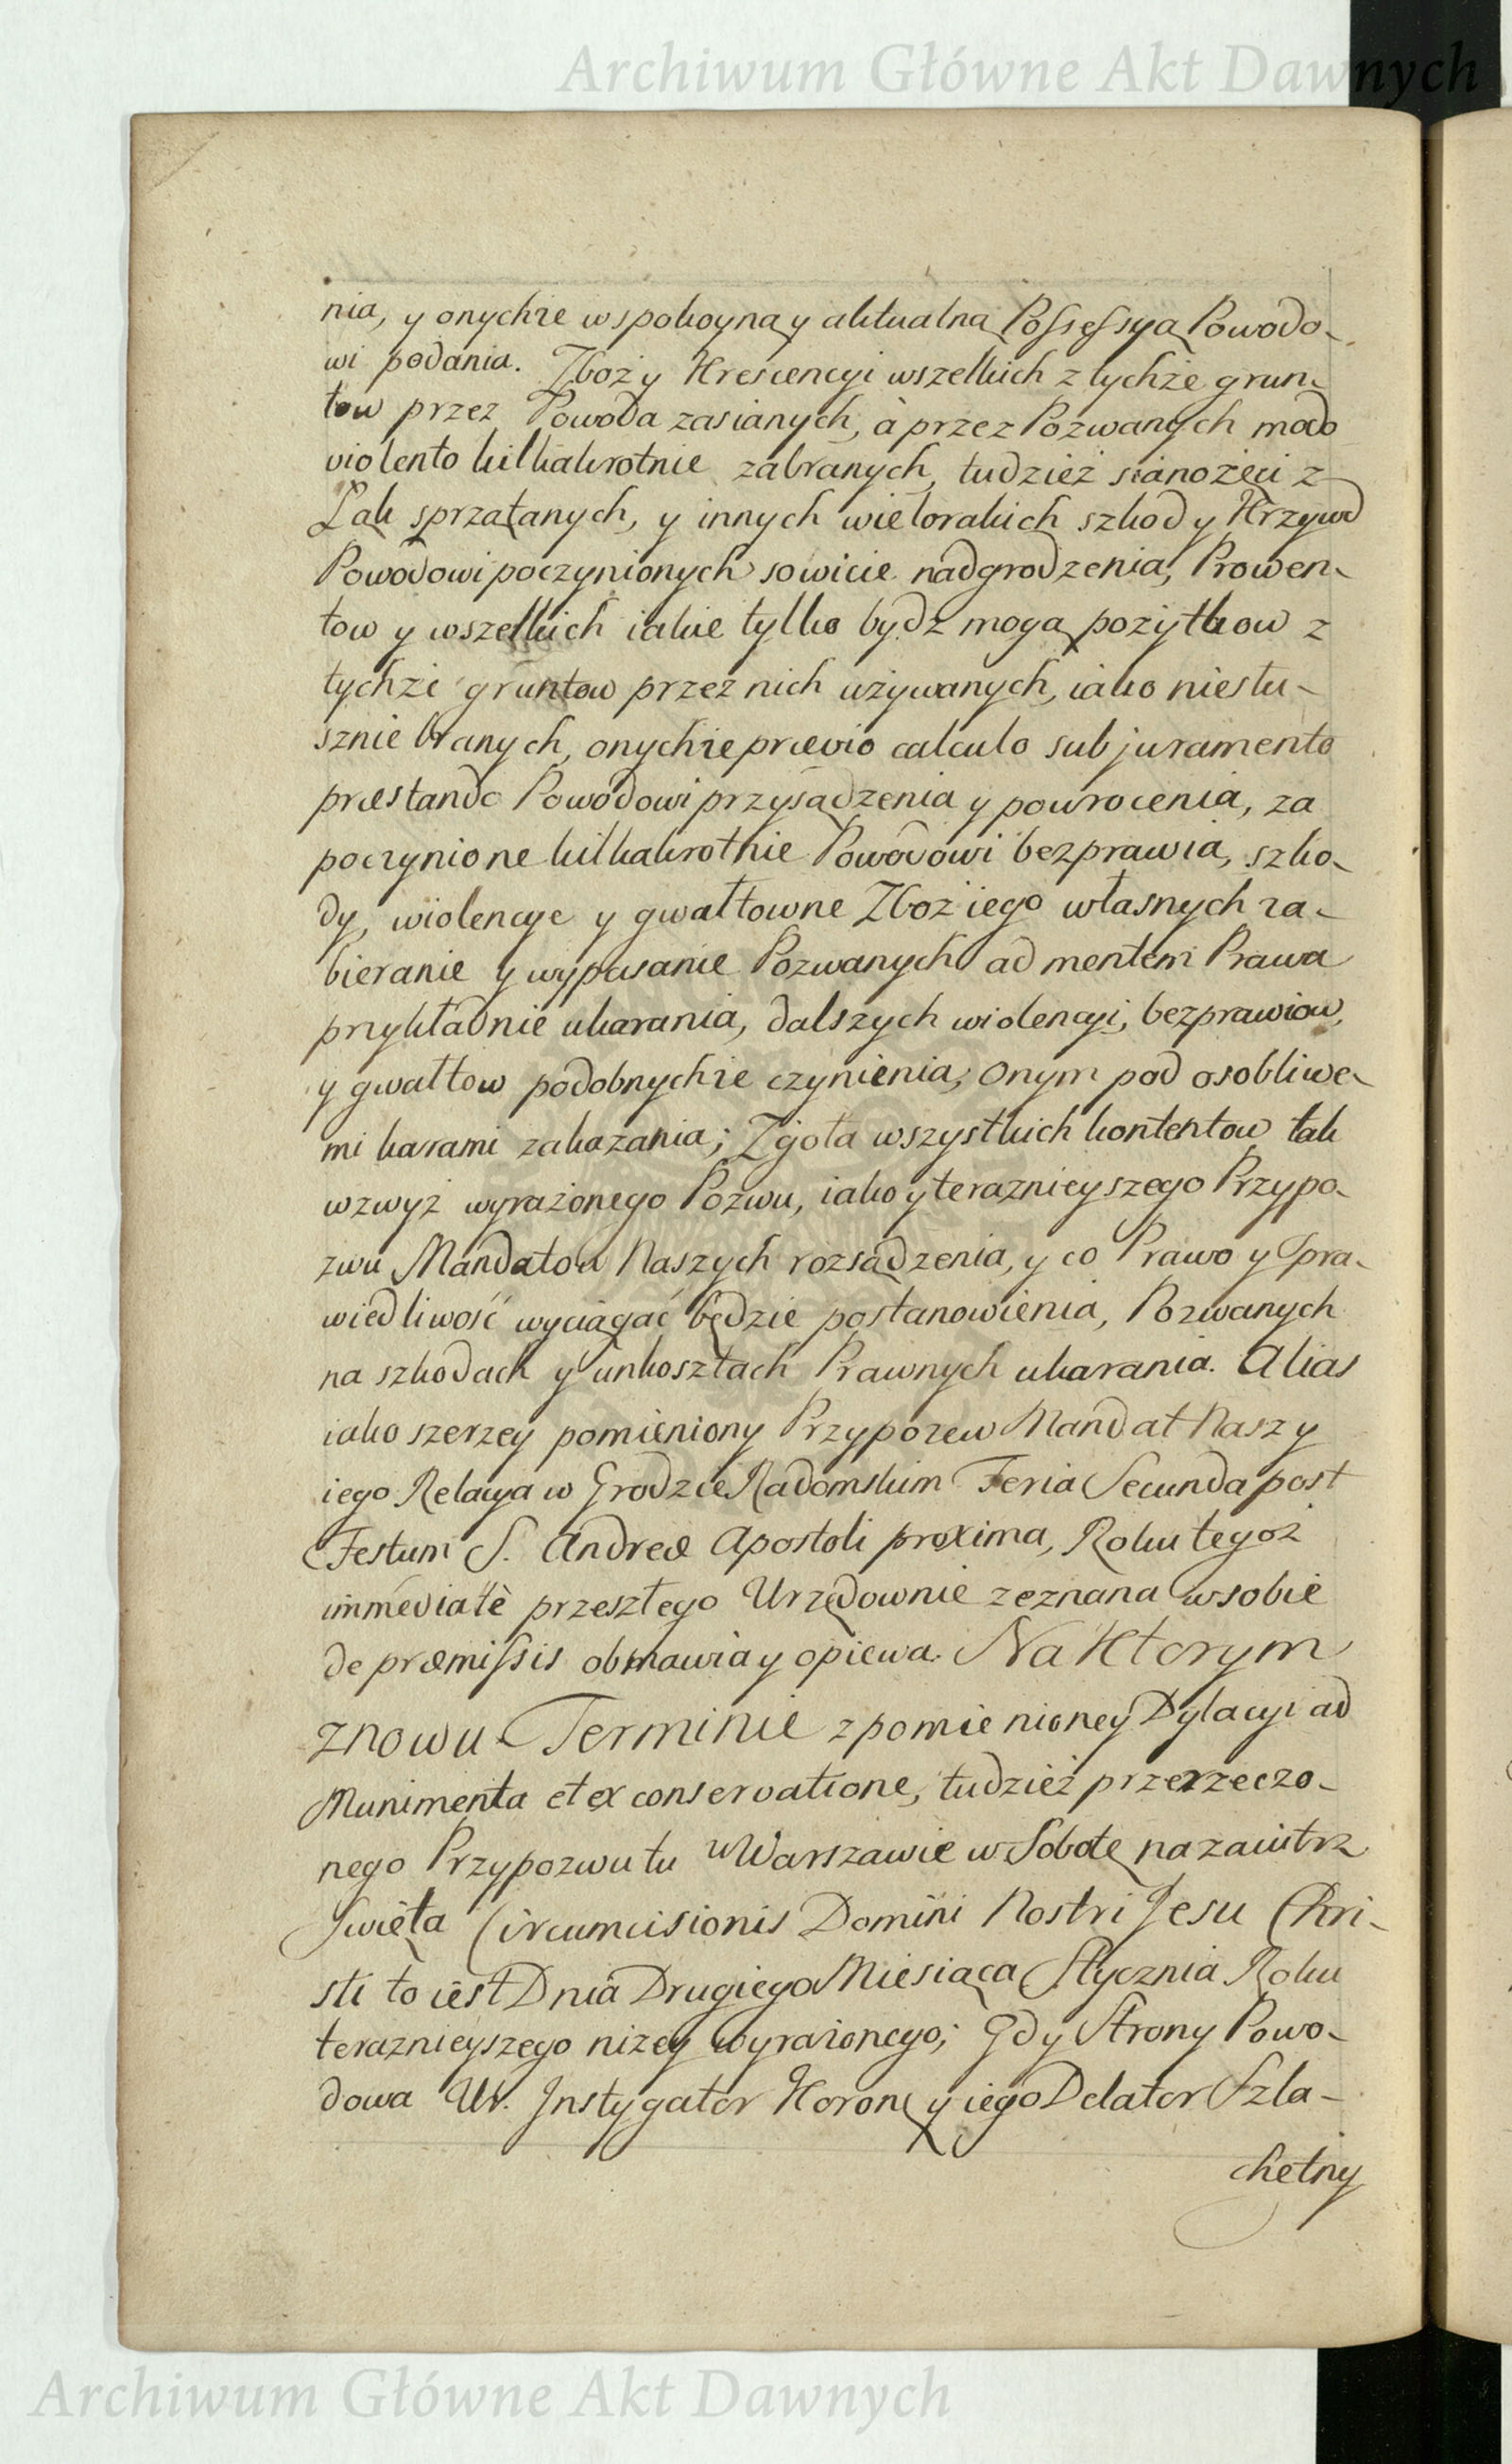 Archiwum Główne Akt Dawnych
nia, y onychże w spokoyną y aktualną Possessyą Powodo-
wi podania. Zboż y Krescencyi wszelkich z tychże grun-
tow przez Powoda zasianych, à przez Pozwanych modo
violento kilkakrotnie zabranych, tudzież sianożęci z
Łąk sprzątanych, y innych wielorakich szkod y Krzywd
Powodowi poczynionych sowicie nadgrodzenia, Prowen-
tow y wszelkich iakie tylko bydz mogą pozytkow z
tychże gruntow przez nich używanych, iako niesłu-
sznie branych, onychże prævio calculo sub juramento
præstando Powodowi przysądzenia y powrocenia, za
poczynione kilkakrotnie Powodowi bezprawia, szko-
dy, wiolencye y gwałtowne Zboż iego własnych za-
bieranie y wypasanie Pozwanych ad mentem Prawa
przykładnie ukarania, dalszych wiolencyi, bezprawiow,
y gwałtow podobnychże czynienia, onym pod osobliwe-
mi karami zakazania; Zgoła wszystkich kontentow tak
wzwyż wyrażonego Pozwu, iako y teraznieyszego Przypo-
zwu Mandatow Naszych rozsądzenia, y co Prawo y Spra-
wiedliwość wyciągać będzie postanowienia, Pozwanych
na szkodach y unkosztach Prawnych ukarania. Alias
iako szerzey pomieniony Przypozew Mandat Nasz y
iego Relacya w Grodzie Radomskim Feria Secunda post
Festum S. Andreæ Apostoli proxima, Roku tegoż
immediatè przeszłego Urzędownie zeznana w sobie
de præmissis obmawia y opiewa. Na Ktorym
znowu Terminie z pomienioney Dylacyi ad
Munimenta et ex conservatione, tudzież przerzeczo-
nego Przypozwu tu w Warszawie w Sobotę nazaiutrz
Święta Circumcisionis Domini Nostri Jesu Chri-
sti to iest Dnia Drugiego Miesiąca Stycznia Roku
teraznieyszego niżey wyrażonego; Gdy Strony Powo-
dowa Ur. Instygator Koronẏ y iego Delator Szla-
chetny
Archiwum Główne Akt Dawnych